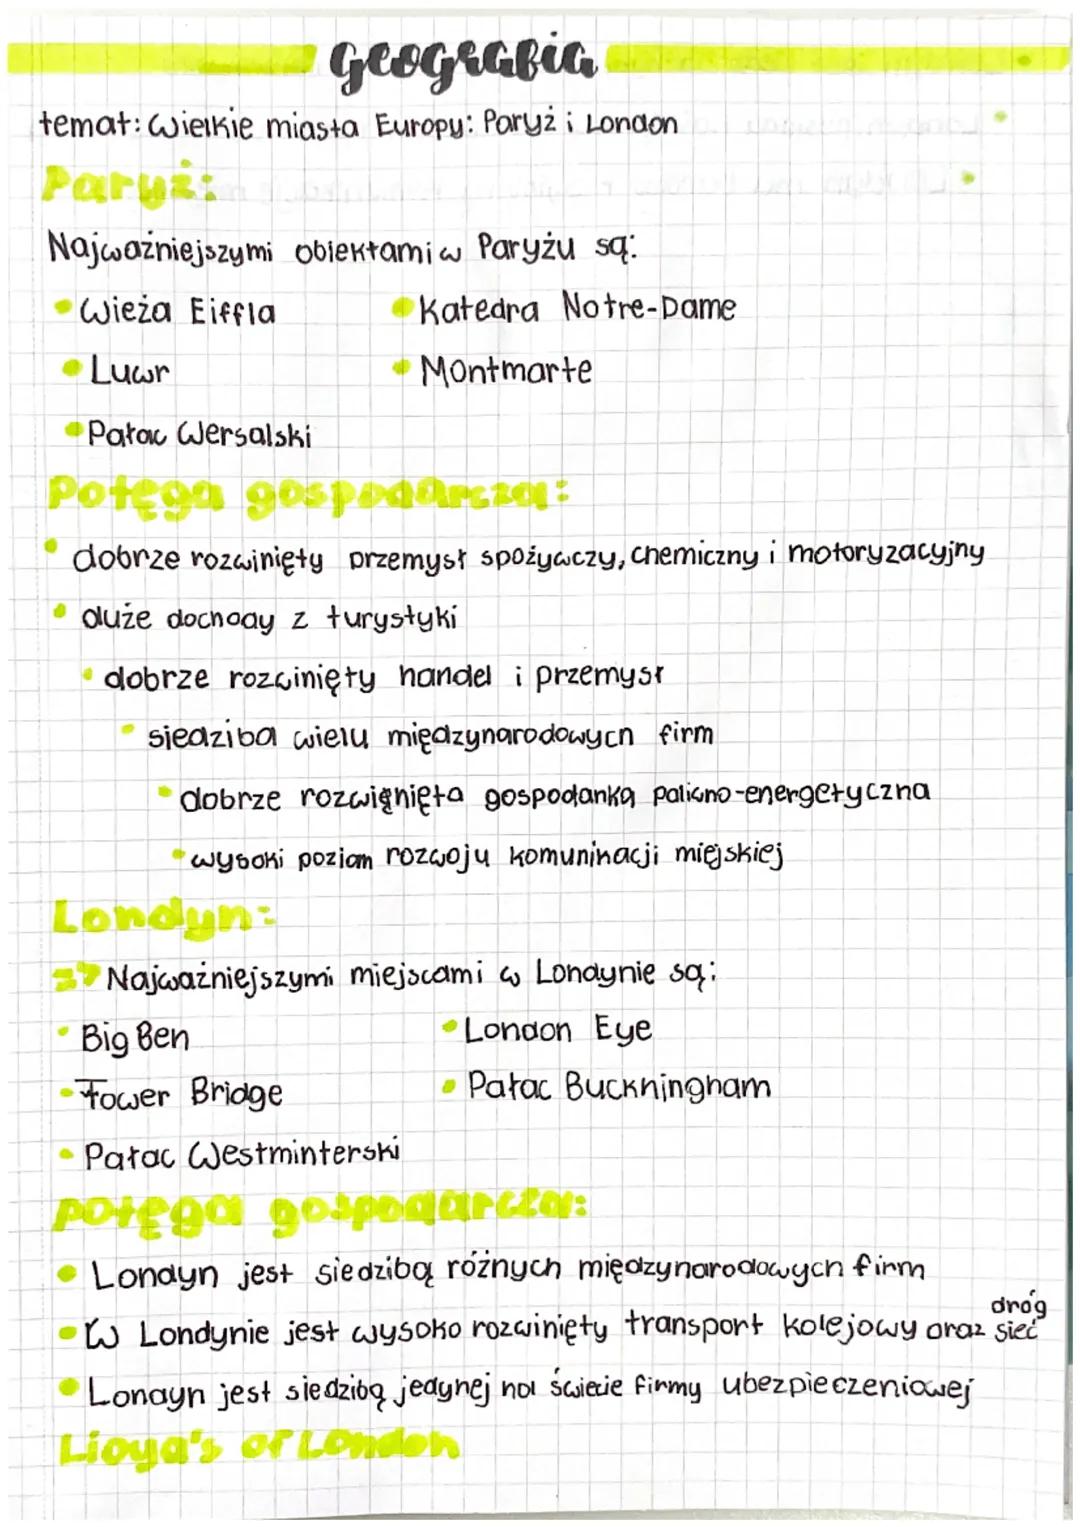 Geografia
temat: Wielkie miasta Europy: Paryż i London
Paryż:
Najważniejszymi obiektami w Paryżu są:
• Wieża Eiffla • Katedra Notre-Dame
• Luwr • Montmarte
• Pałac Wersalski
Potęga gospodarcza:
• dobrze rozwinięty przemysł spożywczy, chemiczny i motoryzacyjny
• duże dochody z turystyki
• dobrze rozwinięty handel i przemysł
• siedziba wielu międzynarodowych firm
• dobrze rozwignięta gospodanka paliwno-energetyczna
• wysoki poziom rozwoju komuninacji miejskiej
Londyn:
=> Najważniejszymi miejscami w Londynie są:
• Big Ben • London Eye
• Tower Bridge • Pałac Buckningham
• Pałac Westminterski
potęga gospodarcza:
• Londyn jest siedzibą różnych międzynarodowych firm
• W Londynie jest wysoko rozwinięty transport kolejowy oraz sieć dróg
• Londyn jest siedzibą jedynej na świecie firmy ubezpieczeniowej
Lioyd's of London